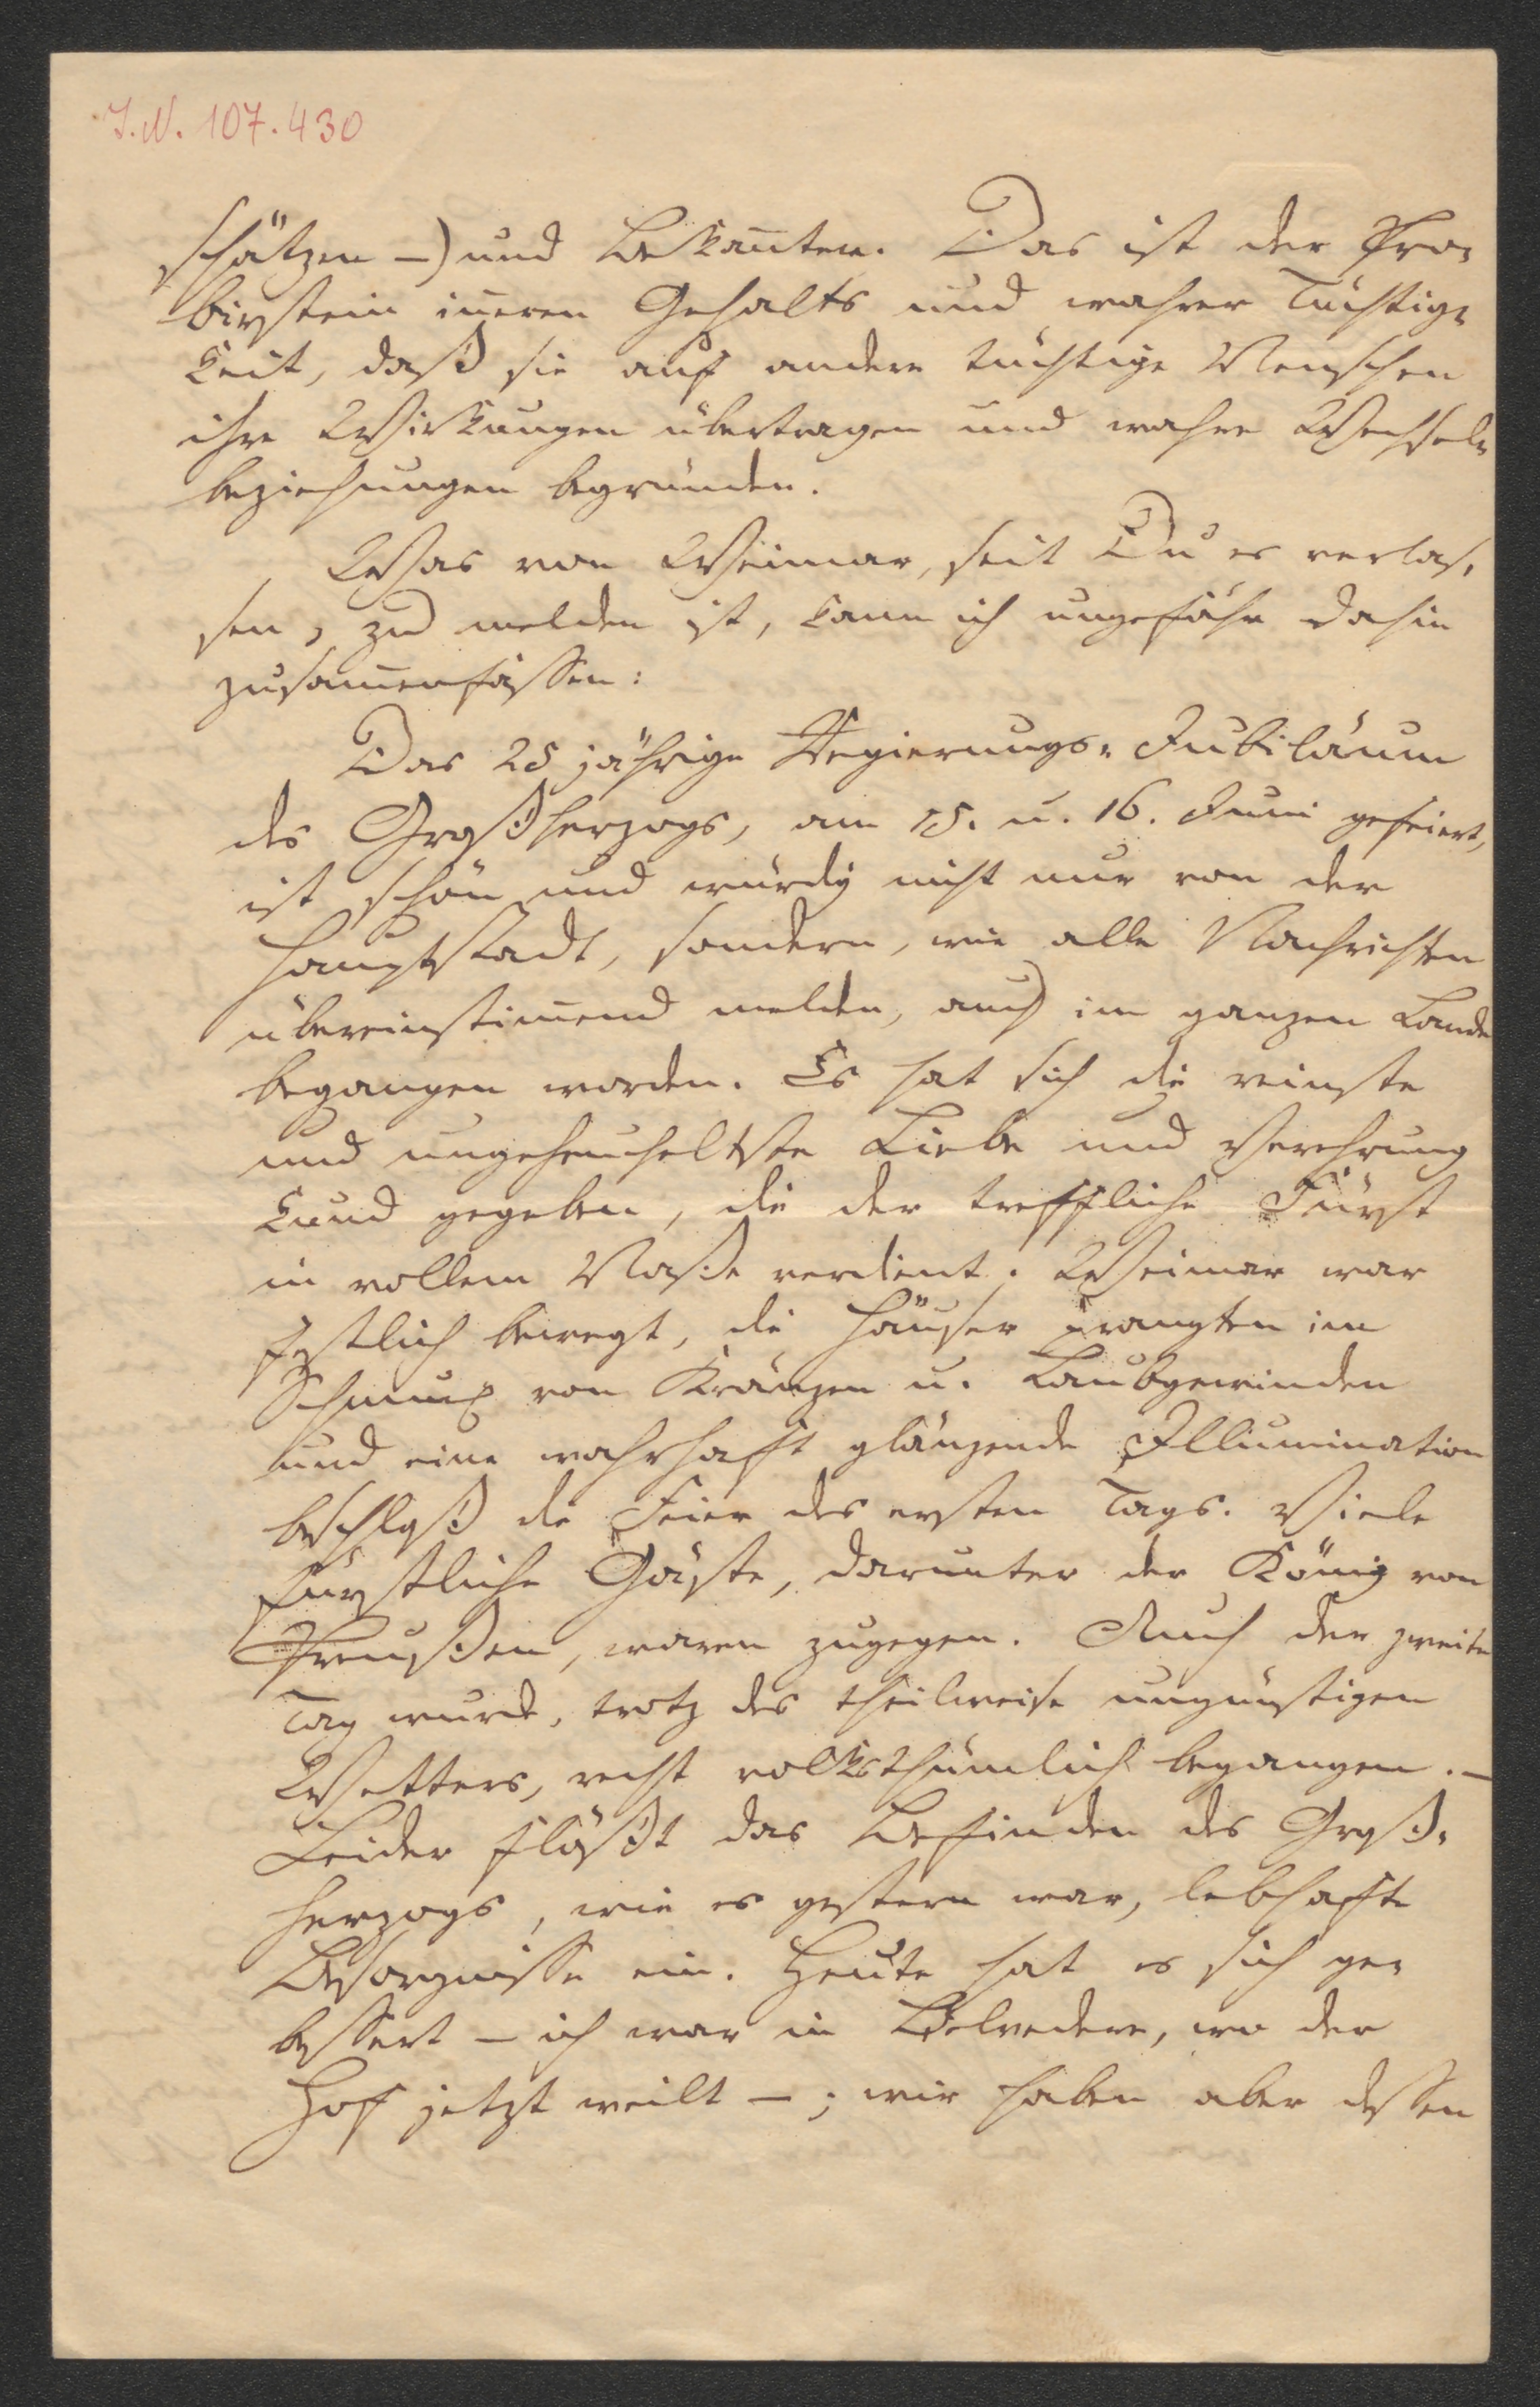 J.N. 107.430
schätzen –) und Bekan̄ten. Das ist der Pro-
birstein in̄eren Gehalts und wahrer Tüchtig-
keit, daß sie auf andere tüchtige Menschen
ihre Wirkungen übertragen und wahre Wechsel-
beziehungen begründen.
Was von Weimar, seit Du es verlas-
sen, zu melden ist, kann ich ungefähr dahin
zusam̄enfassen:
Das 25 jährige Regierungs-Jubiläum
des Großherzogs, am 15. u. 16. Juni gefeiert,
ist schön und würdig nicht nur von der
Hauptstadt, sondern, wie alle Nachrichten
übereinstim̄end melden, auch im ganzen Lande
begangen worden. Es hat sich die reinste
und ungeheucheltste Liebe und Verehrung
kund gegeben, die der treffliche Fürst
in vollem Maße verdient. Weimar war
festlich bewegt, die Häuser prangten im
Schmuck von Kränzen u. Laubgewinden
und eine wahrhaft glänzende Illumination
beschloß die Feier des ersten Tags. Viele
fürstliche Gäste, darunter der König von
Preußen, waren zugegen. Auch der zweite
Tag wurde, trotz des theilweise ungünstigen
Wetters, recht volksthümlich begangen. –
Leider flößt das Befinden des Groß-
herzogs, wie es gestern war, lebhafte
Besorgnisse ein. Heute hat es sich ge-
bessert – ich war in Belvedere, wo der
Hof jetzt weilt –; wir haben aber dessen